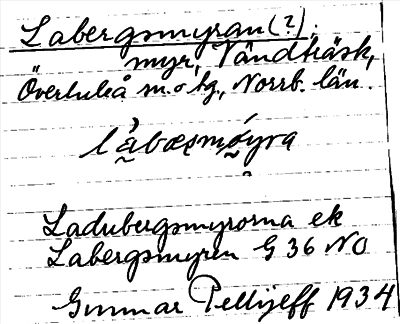 Labergsmyran (?).
myr, Vändträsk,
Överluleå sn o tg, Norrb. län.
Ladubergsmyrorna ek
Labergsmyren G 36 NO
Gunnar Pellijeff 1934